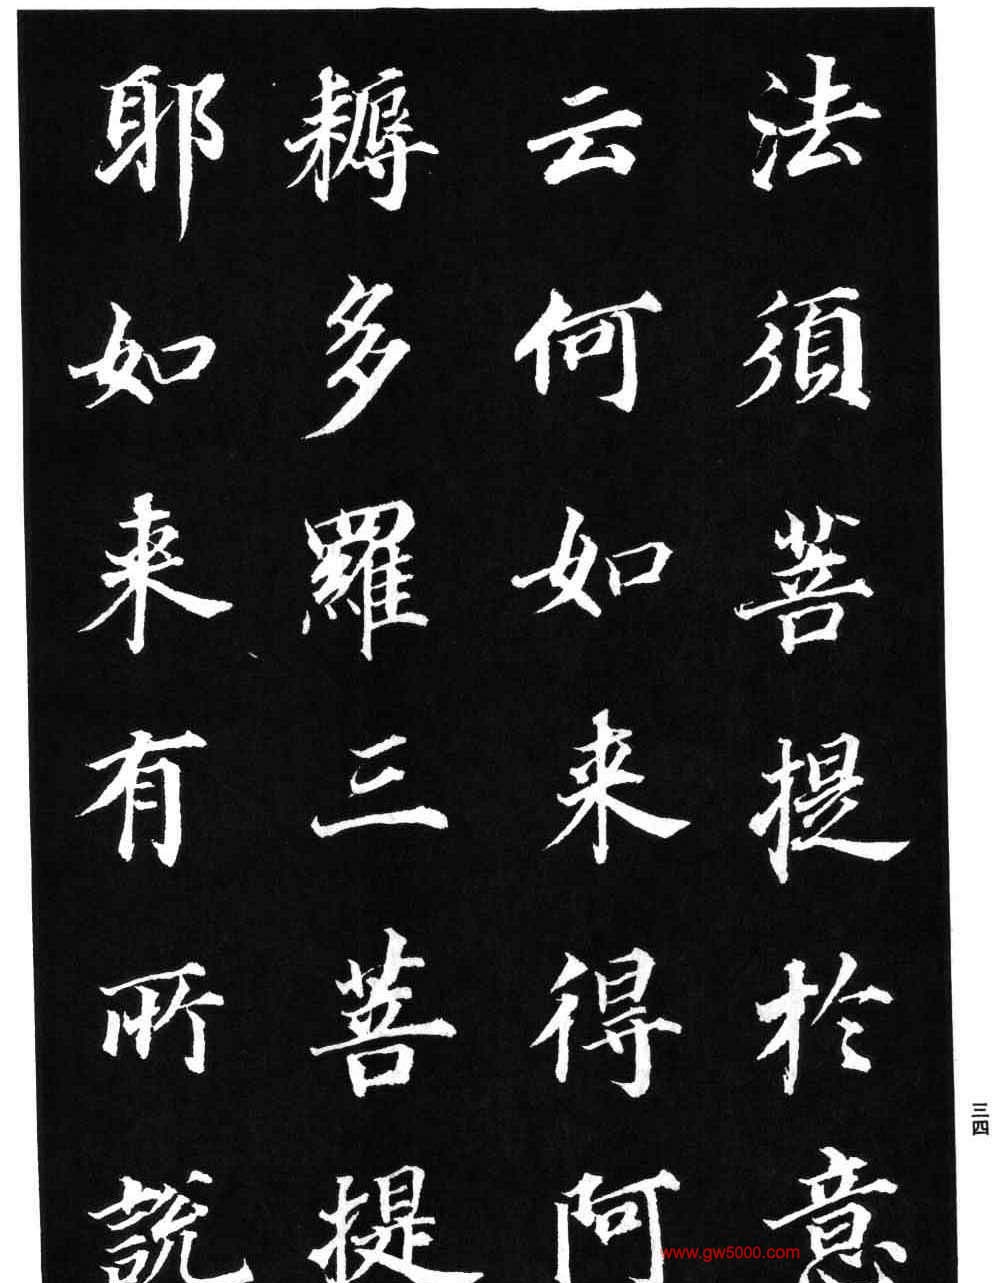 法須菩提於意
云何如来得阿
耨多羅三菩提
耶如来有所說
三四
www.gw5000.com